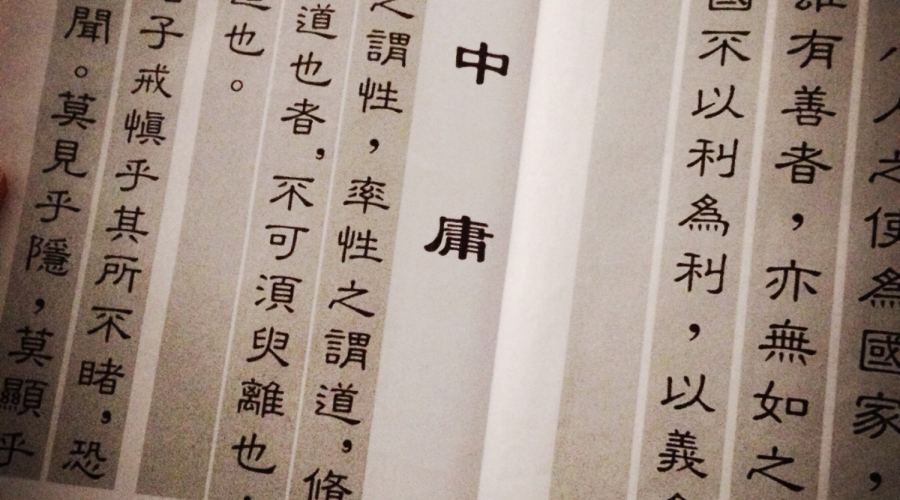 小人之使為國家，
雖有善者，亦無如之
國不以利為利，以義
中庸
之謂性，率性之謂道，脩
道也者，不可須臾離也，
道也。
子戒慎乎其所不睹，恐
聞。莫見乎隱，莫顯乎